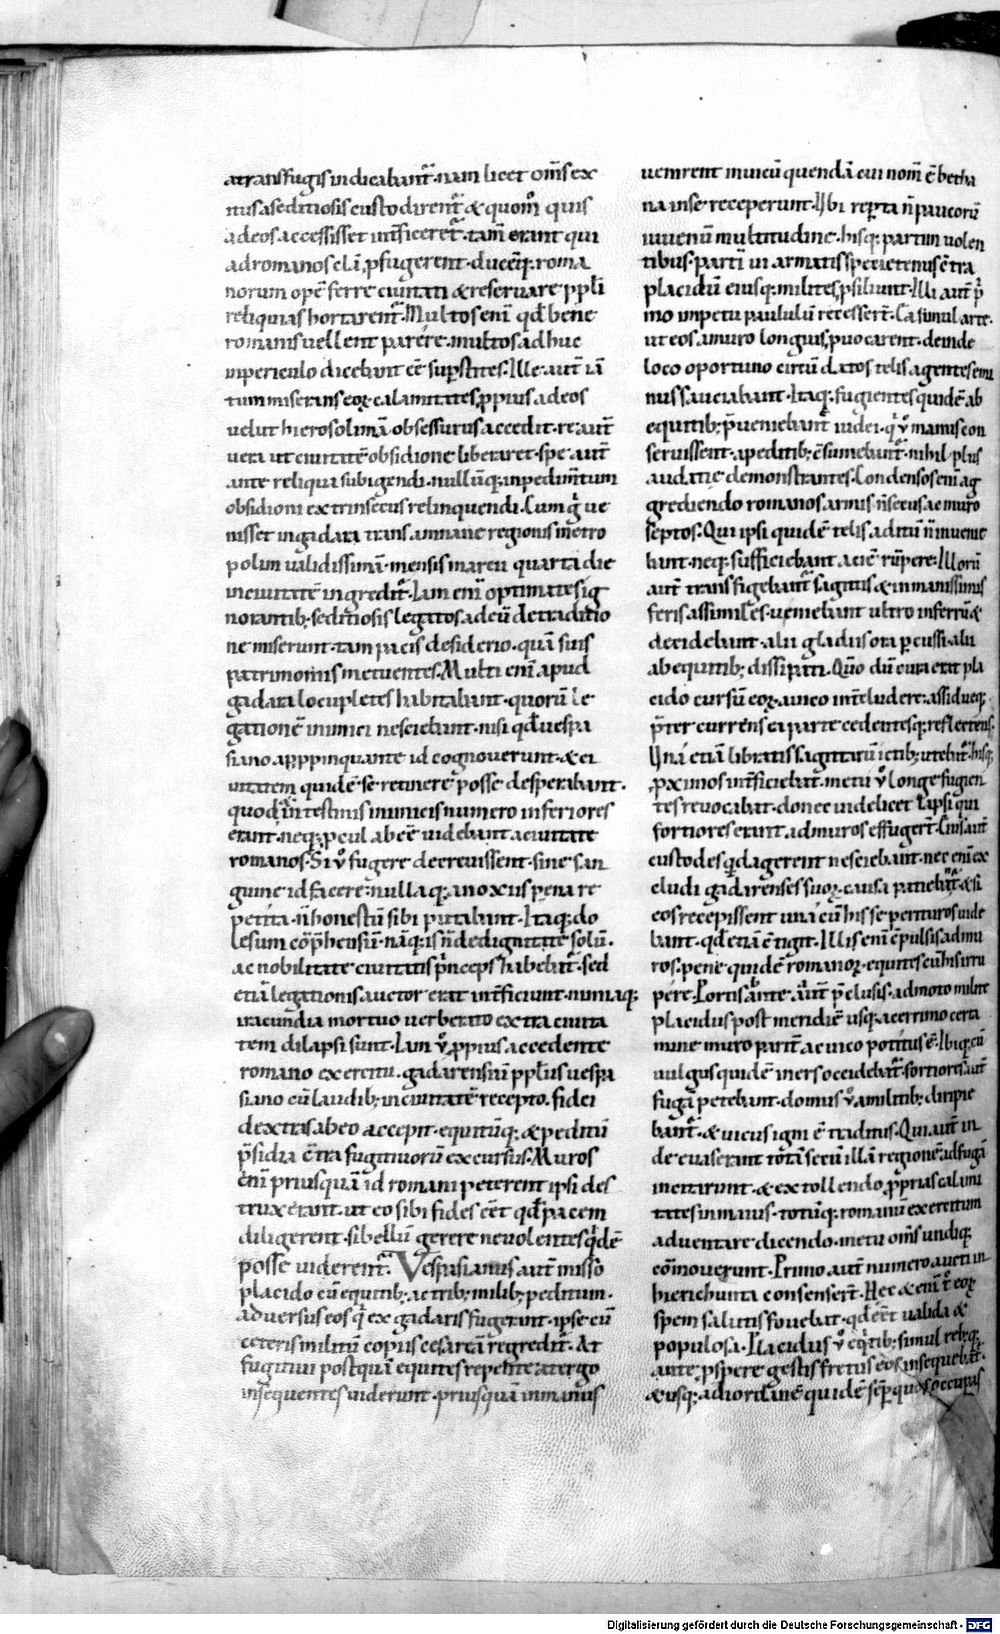 atransfugis indicabant̃. nam licet om̃s ex
itus aseditiosis custodirent̃ & quom̃ quis
adeos accessisset int̃ficeret̃. tam̃ erant qui
adromanos clã ꝓfugerent. ducẽq; roma
norum opẽ ferre ciuitati & reseruare ppl̃i
reliquias hortarent̃. Multos eni᷑ qd̃ bene
romanis uellent parére. multos adhuc
inpericulo dicebant eẽ suꝑstites. Ille aut̃ iã
tum miserans eoꝝ calamitates, ꝓpius adeos
velut hierosolimã obsessurus accedit. re aut̃
uera ut ciuitatẽ obsidione liberaret. spe aut̃
ante reliqua subigendi. nullũq; inpedim̃tum
obsidioni extrinsecus relinquendi. Cum g̃ ue
nisset ingadara trans amnane regionis metro
polim ualidissimã. mensis marcii quarta die
inciuitatẽ ingredit̃. Iam eni᷑ optimates ig
norantib; seditiosis legatos adeũ detraditio
ne miserunt. tam pacis desiderio. quã suis
patrimoniis metuentes. Multi eni᷑ apud
gadara locupletes habitabant. quorũ le
gationẽ inimici nesciebant. nisi qd̃ uespa
siano apꝓpinquante id cognouerunt. & ci
uitatem quidẽ se retinere posse desperabant.
quod intestinis inimicis numero inferiores
erant. neq; ꝓcul abeẽ uidebant aciuitate
romanos. Si ũ fugere decreuissent. sine san
guine id facere nullaq; anoxiis pena re
petita. ñ honestũ sibi putabant. Itaq; do
lesum cõp̃hensũ. nãq; is ñ dedignitate solũ.
ac nobilitate ciuitatis p̃nceps habebat̃. sed
etiã legationis auctor erat int̃ficiunt. nimiaq;
iracundia mortuo uerberato extra ciuita
tem dilapsi sunt. Iam ũ ꝓpius accedente
romano exercitu. gadarensiũ ppl̃us uespa
siano cũ laudib; inciuitatẽ recepto. fidei
dextras abeo accepit. equitũq; & peditũ
p̃sidia cõtra fugitiuorũ excursus. Muros
eni᷑ priusquã id romani peterent ipsi des
truxerant. ut eo sibi fides eẽt qd̃ pacem
diligerent. si bellũ gerere ne uolentes qdẽ
posse uiderent̃. Vespasianus aut̃ misso
placido cũ equitib; ac trib; milib; peditum.
aduersus eos q̃ ex gadaris fugerant. ipse cũ
ceteris militũ copiis cesareã regredit̃. At
fugitiui postquã equites repente atergo
insequentes uiderunt. priusquã inmanus
uenirent uincũ quendã cui nom̃ ẽ betha
na inse receperunt. Ubi reꝑta ñ paucorũ
iuuenũ multitudine. hisq; partim uolen
tibus partĩ ui armatis specie temere cõtra
placidũ eiusq; milites ꝓsiliunt. Illi aut̃ p̃
mo impetu paululũ recessert̃. Cã simul arte.
ut eos amuro longius ꝓuocarent. deinde
loco oportuno circũdatos telis agentes emi
nus sauciabant. Itaq; fugientes quidẽ ab
equitib; p̃ueniebant̃ iudei. q̃ ũ manus con
seruissent. apeditib; cõsumebant̃. nihil plus
audatie demonstrantes. Condensos eni᷑ ag
grediendo romanos armis. ñ secus ac muro
septos. Qui ipsi quidẽ telis aditũ ñ inuenie
bant. neq; sufficiebant aciẽ rũpere. Illorũ
aut̃ transfigebant̃ sagittis & inmanissimis
feris assimiles. ueniebant ultro inferrũ &
decidebant. alii gladiis ora ꝑcussi. alii
ab equitib; dissipati. Quo dũ cura erat pla
cido cursũ eoꝝ. auico int̃cludere. assidueq;
p̃ter currens ea parte cedentesq; reflectens.
Unã etiã libratis sagittarũ ictib; utebat̃. hisq;
ꝓximos int̃ficiebat. metu ũ longe fugien
tes reuocabat. donec uidelicet lapsi qui
fortiores erant. admuros effugert̃. Cuius aut̃
custodes qd agerent nesciebant. nec eni᷑ ex
cludi gadarenses suoꝝ causa patiebant̃. & si
eos recepissent unã cũ his se perituros uide
bant. qd̃ etiã cõtigit. Illis eni᷑ cõpulsis admu
ros. pene quidẽ romanoꝝ equites cũ his irru
pere. Portis aut̃ ante p̃clusis. admoto milite
placidus post meridiẽ usq; acerrimo certa
mine muro parit̃ ac uico potitus ẽ. Ibiq; cũ
uulgus quidẽ iners occidebat̃. fortiores aut̃
fugã petebant. domus ũ amilitib; diripie
bant̃. & uicus igni ẽ traditus. Qui aut̃ in
de euaserant totã secũ illã regionẽ adfugã
incitarunt. & extollendo ꝓprias calami
tates inmaius. totũq; romanũ exercitum
aduentare dicendo. metu om̃s undiq;
cõmouerunt. Primo aut̃ numero aucti in
hierichunta consensert̃. Hec & eni᷑ t̃ eoꝝ
spem salutis fouebat. qd̃ eẽt ualida &
populosa. Placidus ũ eq̃tib; simul reb; q;
ante ꝓspere gestis fretus eos insequebat̃.
& usq; adiordanẽ quidẽ semꝑ quos occupas
Digitalisierung gefördert durch die Deutsche Forschungsgemeinschaft - DFG